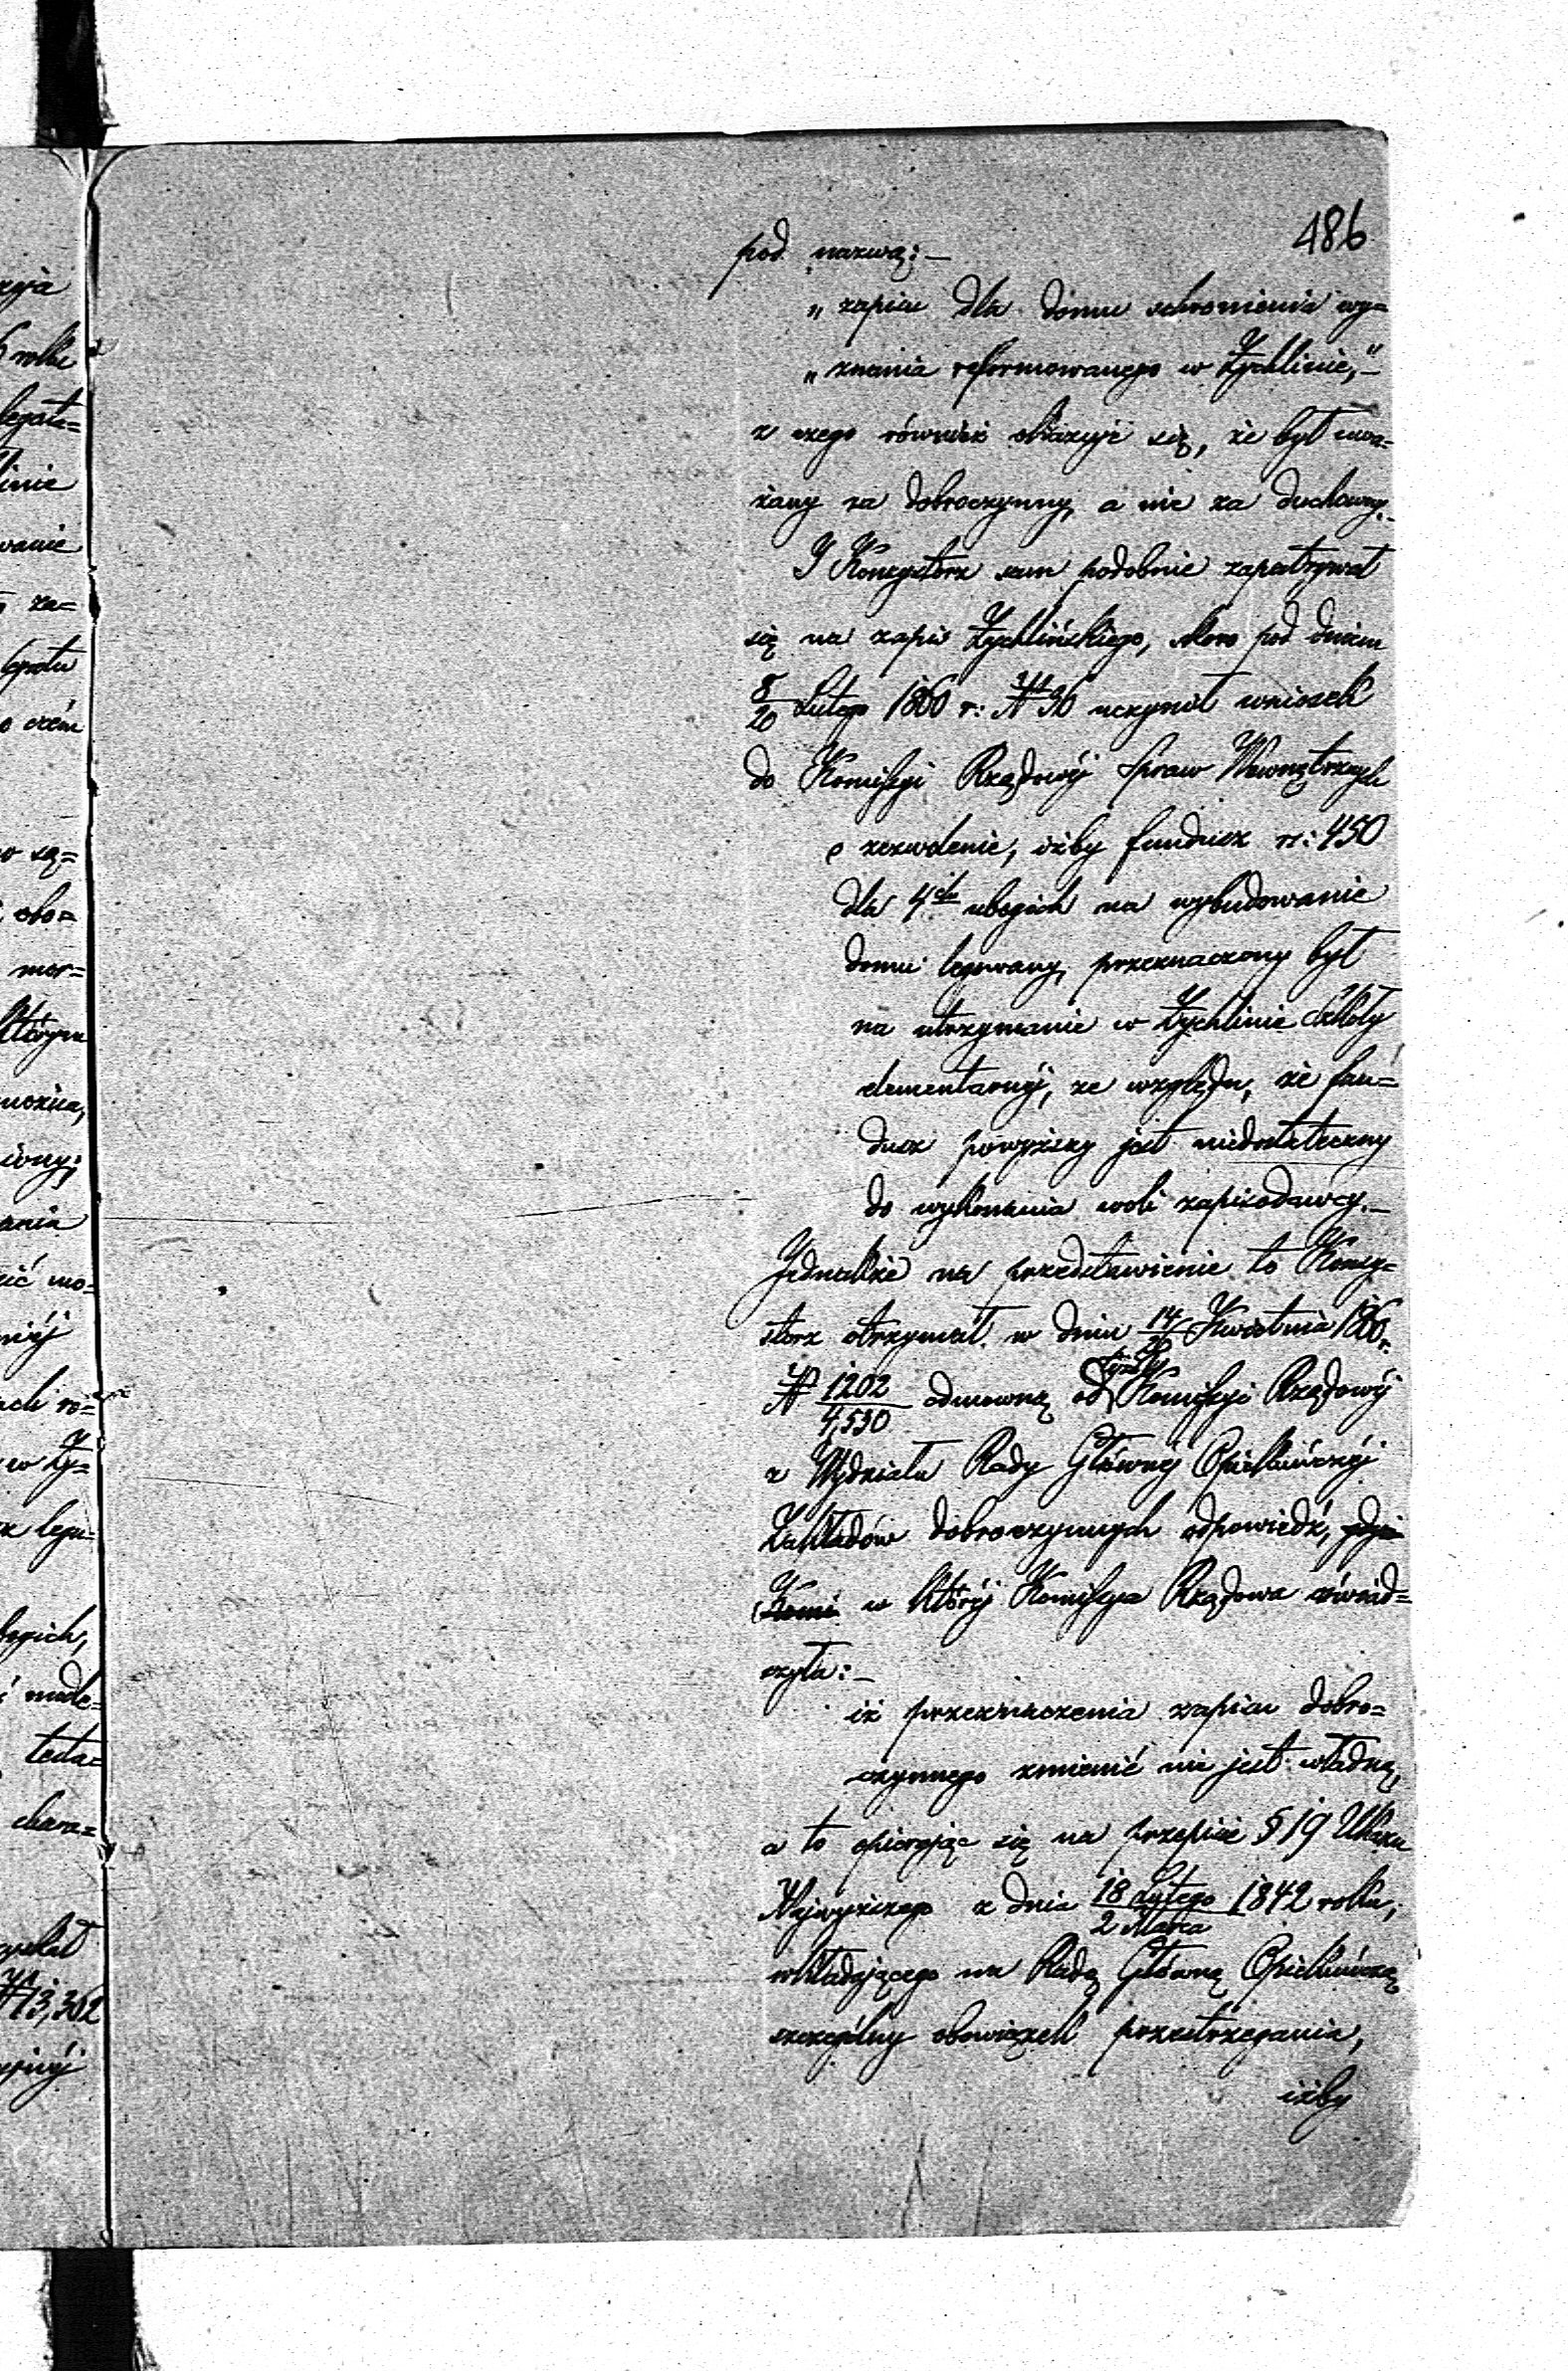 486
pod nazwą:—
„ zapisu dla domu schronienia wy=
„ znania reformowanego w Żychlinie,"—
z czego również okazuje się, że był uwa=
żany za dobroczynny, a nie za duchowny.
I Konsystorz sam podobnie zapatrywał
się na zapis Żychlińskiego, skoro pod dniem
8/20 Lutego 1860 r: N 36 uczynił wniosek
do Komissyi Rządowéj Spraw Wewnętrznych
o zezwolenie, iżby fundusz rs: 450
dla 4ch ubogich na wybudowanie
domu legowany, przeznaczony był
na utrzymanie w Żychlinie Szkoły
elementarnéj, ze względu, że fun=
dusz powyższy jest niedostateczny
do wykonania woli zapisodawcy.—
Jednakże na przedstawienie to Konsy=
storz otrzymał w dniu 14/26 Kwietnia 1860 r.
N 1202/4,530 odmowną od tejże Komissyi Rządowéj
z Wydziału Rady Głównej Opiekuńczéj
Zakładów dobroczynnych odpowiedź, gdzie
Komi w któréj Komissya Rządowa oświad=
czyła:—
iż przeznaczenia zapisu dobro=
czynnego zmienić nie jest władną,
a to opierając się na przepisie § 19 Ukazu
Najwyższego z dnia 18 Lutego/2 Marca 1842 roku,
wkładającego na Radę Główną Opiekuńczą
szczególny obowiązek przestrzegania,
iżby
zyja
6 roku
legata=
linie
wanie
za=
legatu
o czém
są=
obo=
mor=
którym
można,
iony;
ania
zić mo=
niéj
ach ro=
w Ży=
legu=
bogich,
nade=
testa=
chara=
N 13,362